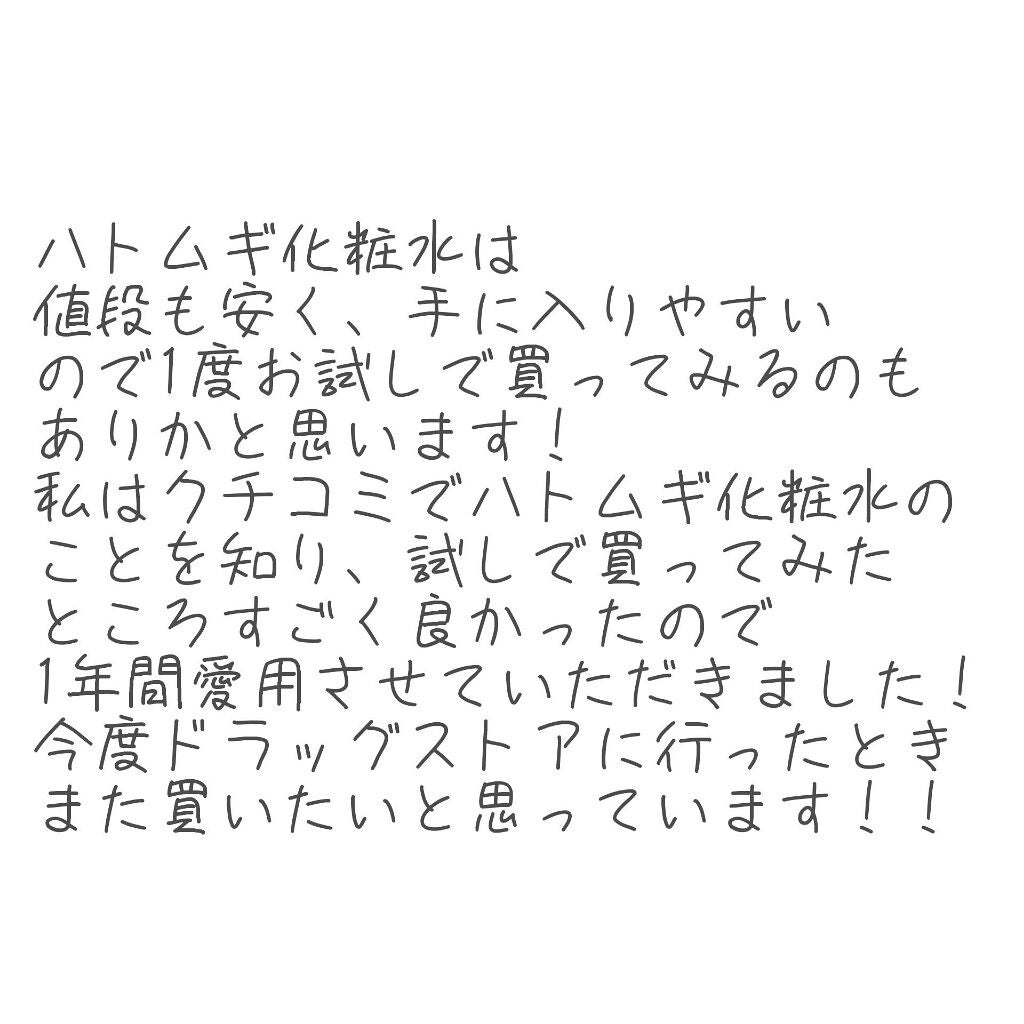 ハトムギ化粧水は
値段も安く、手に入りやすい
ので1度お試しで買ってみるのも
ありかと思います!
私はクチコミでハトムギ化粧水の
ことを知り、試しで買ってみた
ところすごく良かったので
1年間愛用させていただきました!
今度ドラッグストアに行ったとき
また買いたいと思っています!!